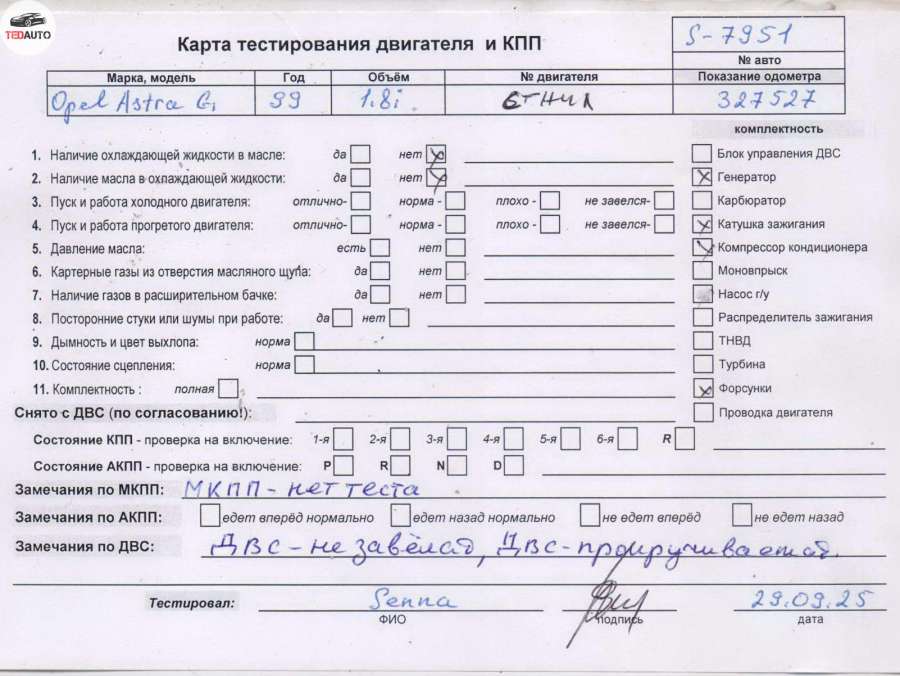 TEDAUTO
Карта тестирования двигателя и КПП
S-7951
№ авто
Марка, модель Год Объём № двигателя Показание одометра
Opel Astra G 99 1.8i 327527
комплектность
1. Наличие охлаждающей жидкости в масле: да нет Блок управления ДВС
2. Наличие масла в охлаждающей жидкости: да нет Генератор
3. Пуск и работа холодного двигателя: отлично- норма - плохо - не завелся- Карбюратор
4. Пуск и работа прогретого двигателя: отлично- норма - плохо - не завелся- Катушка зажигания
5. Давление масла: есть нет Компрессор кондиционера
6. Картерные газы из отверстия масляного щупа: да нет Моновпрыск
7. Наличие газов в расширительном бачке: да нет Насос г/у
8. Посторонние стуки или шумы при работе: да нет Распределитель зажигания
9. Дымность и цвет выхлопа: норма ТНВД
10. Состояние сцепления: норма Турбина
11. Комплектность : полная Форсунки
Снято с ДВС (по согласованию!): Проводка двигателя
Состояние КПП - проверка на включение: 1-я 2-я 3-я 4-я 5-я 6-я R
Состояние АКПП - проверка на включение: P R N D
Замечания по МКПП: МКПП - нет теста
Замечания по АКПП: едет вперёд нормально едет назад нормально не едет вперёд не едет назад
Замечания по ДВС: ДВС - не завёлся, ДВС - прокручивается.
Тестировал: Senna 29.09.25
ФИО подпись дата